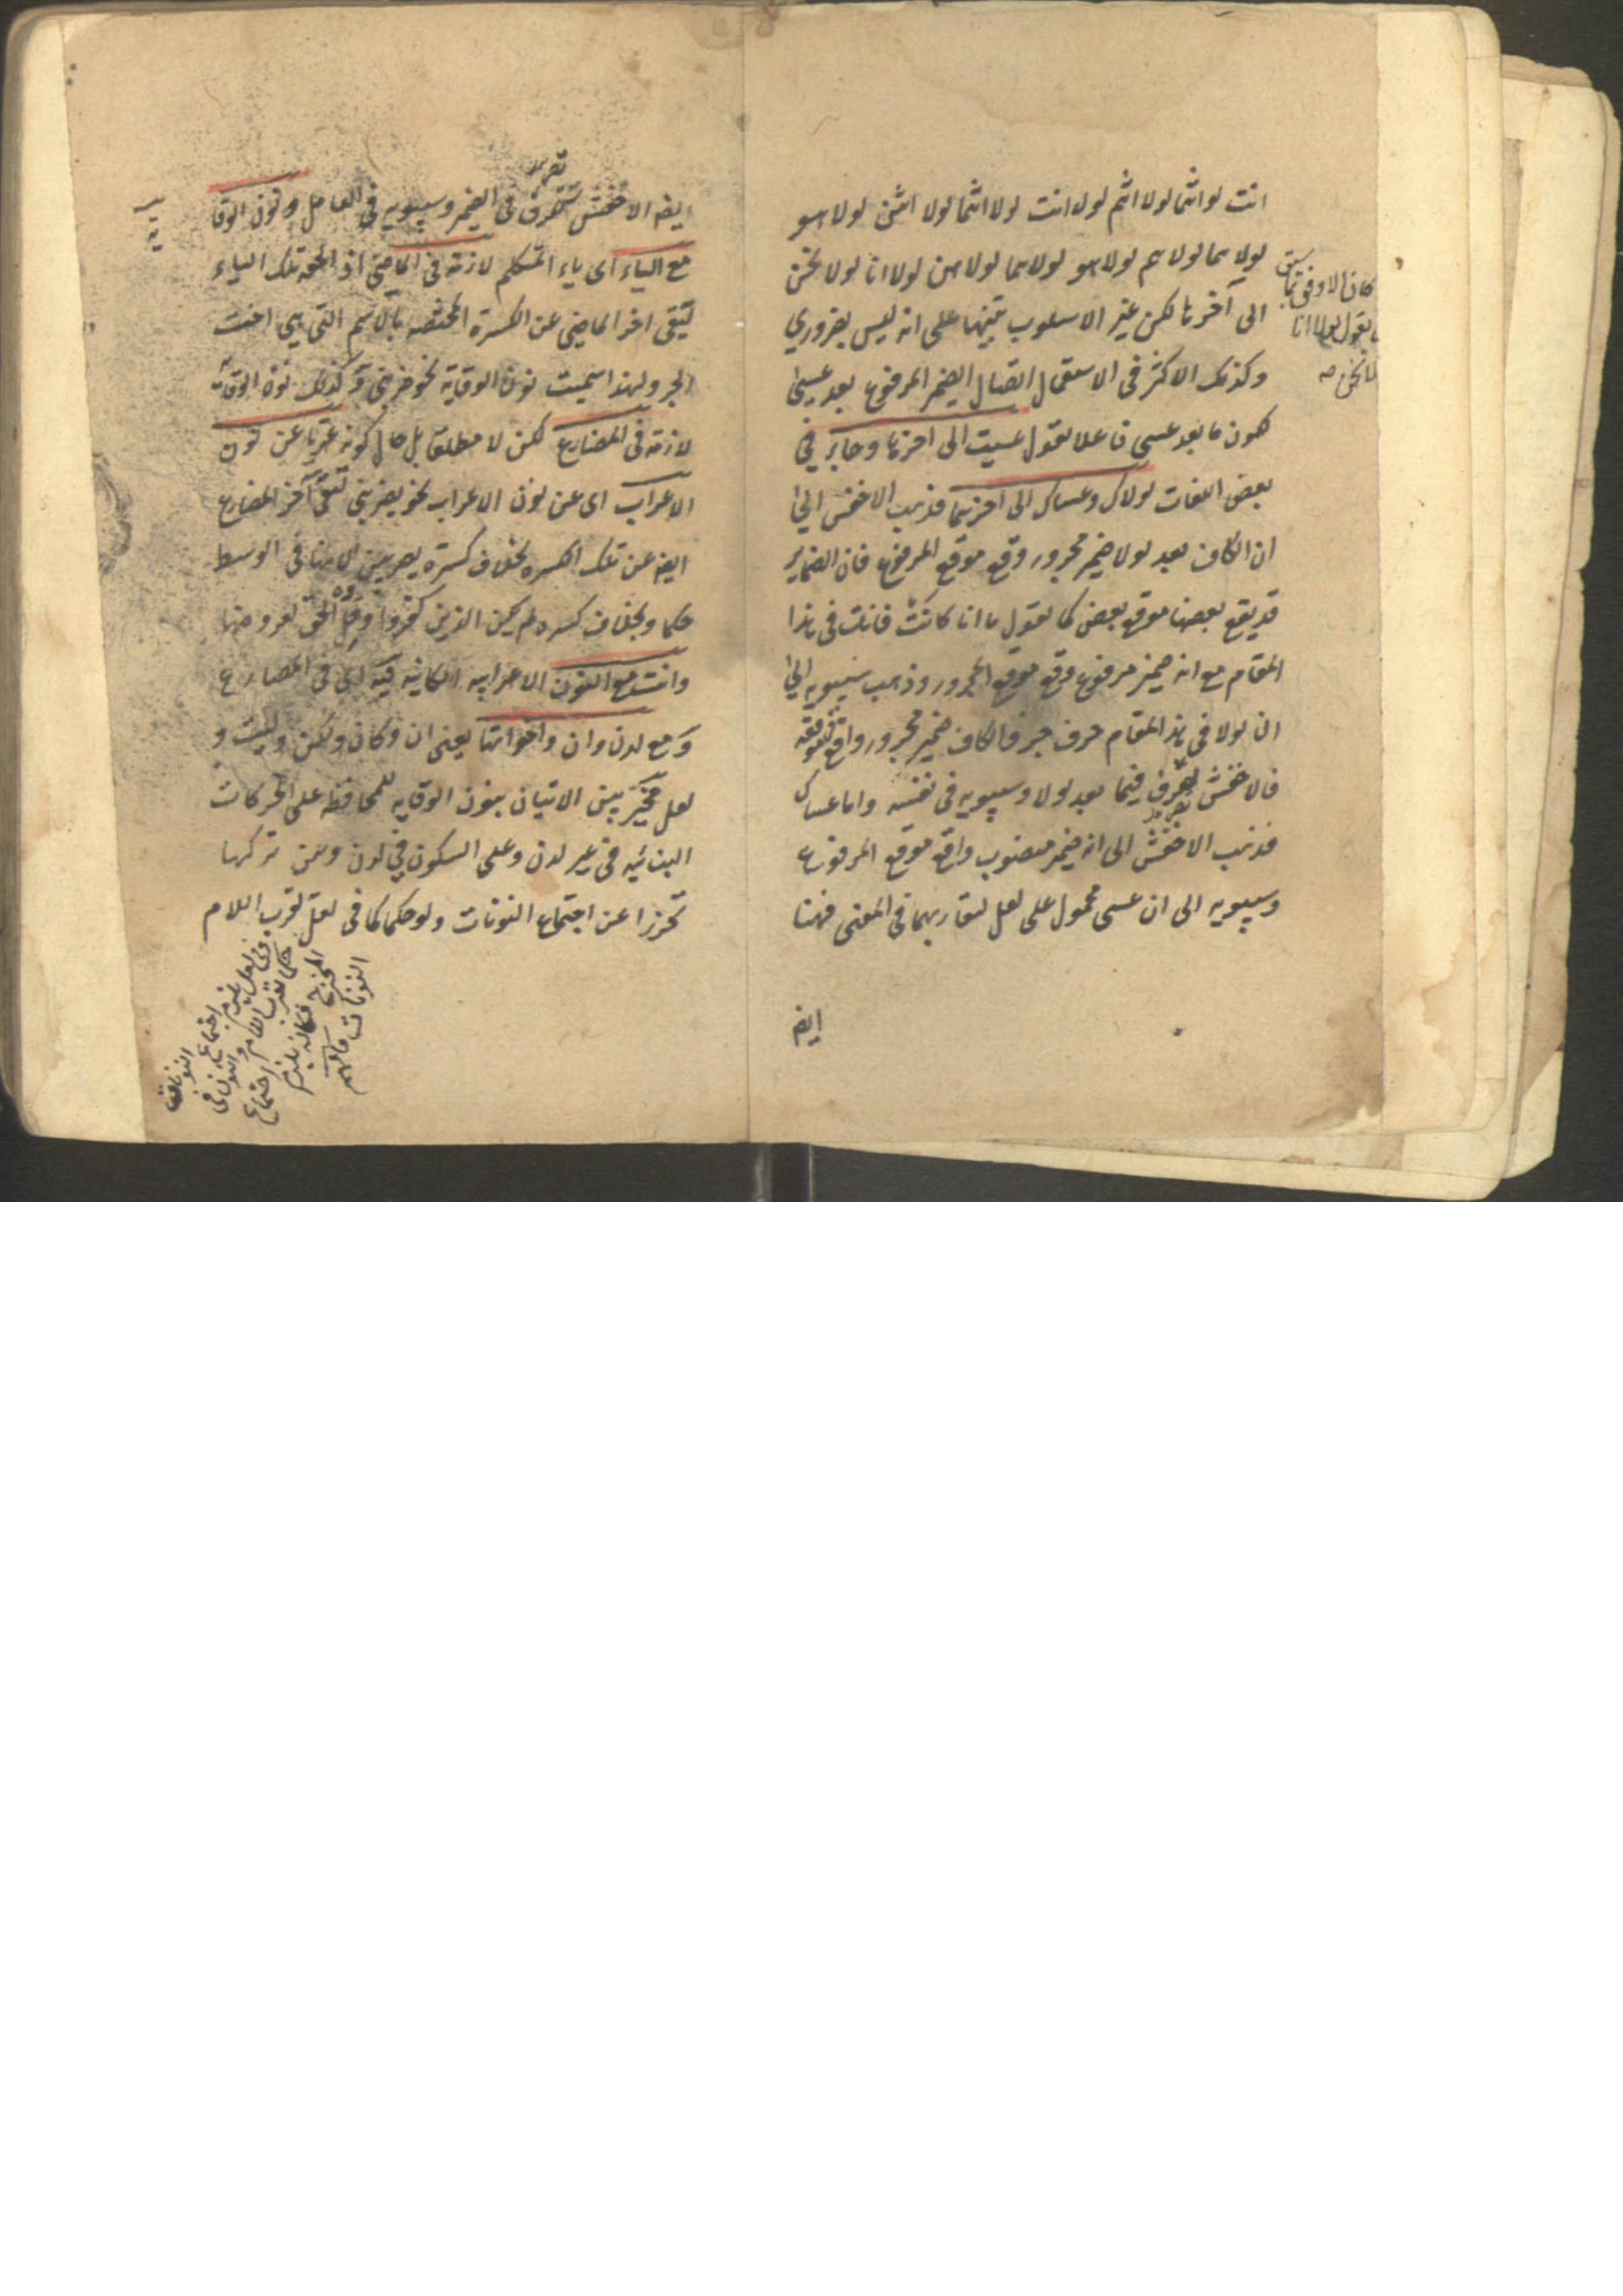 انت لو انتما لولا انتم لولا انت لولا انتما لولا انتن لولا هو
لولا هما لولا هم لولا هو لولا هما لولا هن لولا انا لولا نحن
الى آخرها لكن غير الاسلوب تنبيها على انه ليس بضروري
وكذلك الاكثر فى الاستعمال اتصال الضمير المرفوع بعد عسى
لكون ما بعد عسى فاعلا تقول عسيت الى اخرها وجاء فى
بعض اللغات لولاك وعساك الى اخرهما فذهب الاخفش الى
ان الكاف بعد لولا ضمير مجرور وقع موقع المرفوع فان الضماير
قد يقع بعضها موقع بعض كما تقول ما انا كانت فانت فى هذا
المقام مع انه ضمير مرفوع وقع موقع المجرور وذهب سيبويه الى
ان لولا فى هذا المقام حرف جر فالكاف ضمير مجرور واقع موقعه
فالاخفش تصرف فيما بعد لولا وسيبويه فى نفسه واما عساك
فذهب الاخفش الى انه ضمير منصوب واقع موقع المرفوع
وسيبويه الى ان عسى محمول على لعل لتقاربهما فى المعنى فهنا
ايضا
كان الاوفق بما سبق
ان يقول لولا انا
لولا نحن صه
ايضا الاخفش تصرف فى الضمير وسيبويه فى العامل ونون الوقا
يه
مع الياء اى ياء المتكلم لازمة فى الماضى اذ الحقه تلك الياء
لتقى اخر الماضى عن الكسرة المختصه بالاسم التى هى اخت
الجر ولهذا سميت نون الوقاية نحو ضربنى وكذلك نون الوقاية
لازمة فى المضارع لكن لا مطلقا بل حال كونه عريا عن نون
الاعراب اى عن نون الاعراب نحو يضربنى لتقى آخر المضارع
ايضا عن تلك الكسره بخلاف كسرة يضربين لانها فى الوسط
حكما وبخلاف كسره لم يكن الذين كفروا وقل الحق لعروضها
وانت مع النون الاعرابيه الكاينه فيه اى فى المضارع
ومع لدن وان واخواتها يعنى ان وكان ولكن وليت و
لعل مخير بين الاتيان بنون الوقايه للمحافظه على الحركات
البنائيه فى غير لدن وعلى السكون فى لدن وبين تركها
تحرزا عن اجتماع النونات ولو حكما كما فى لعل لقرب اللام